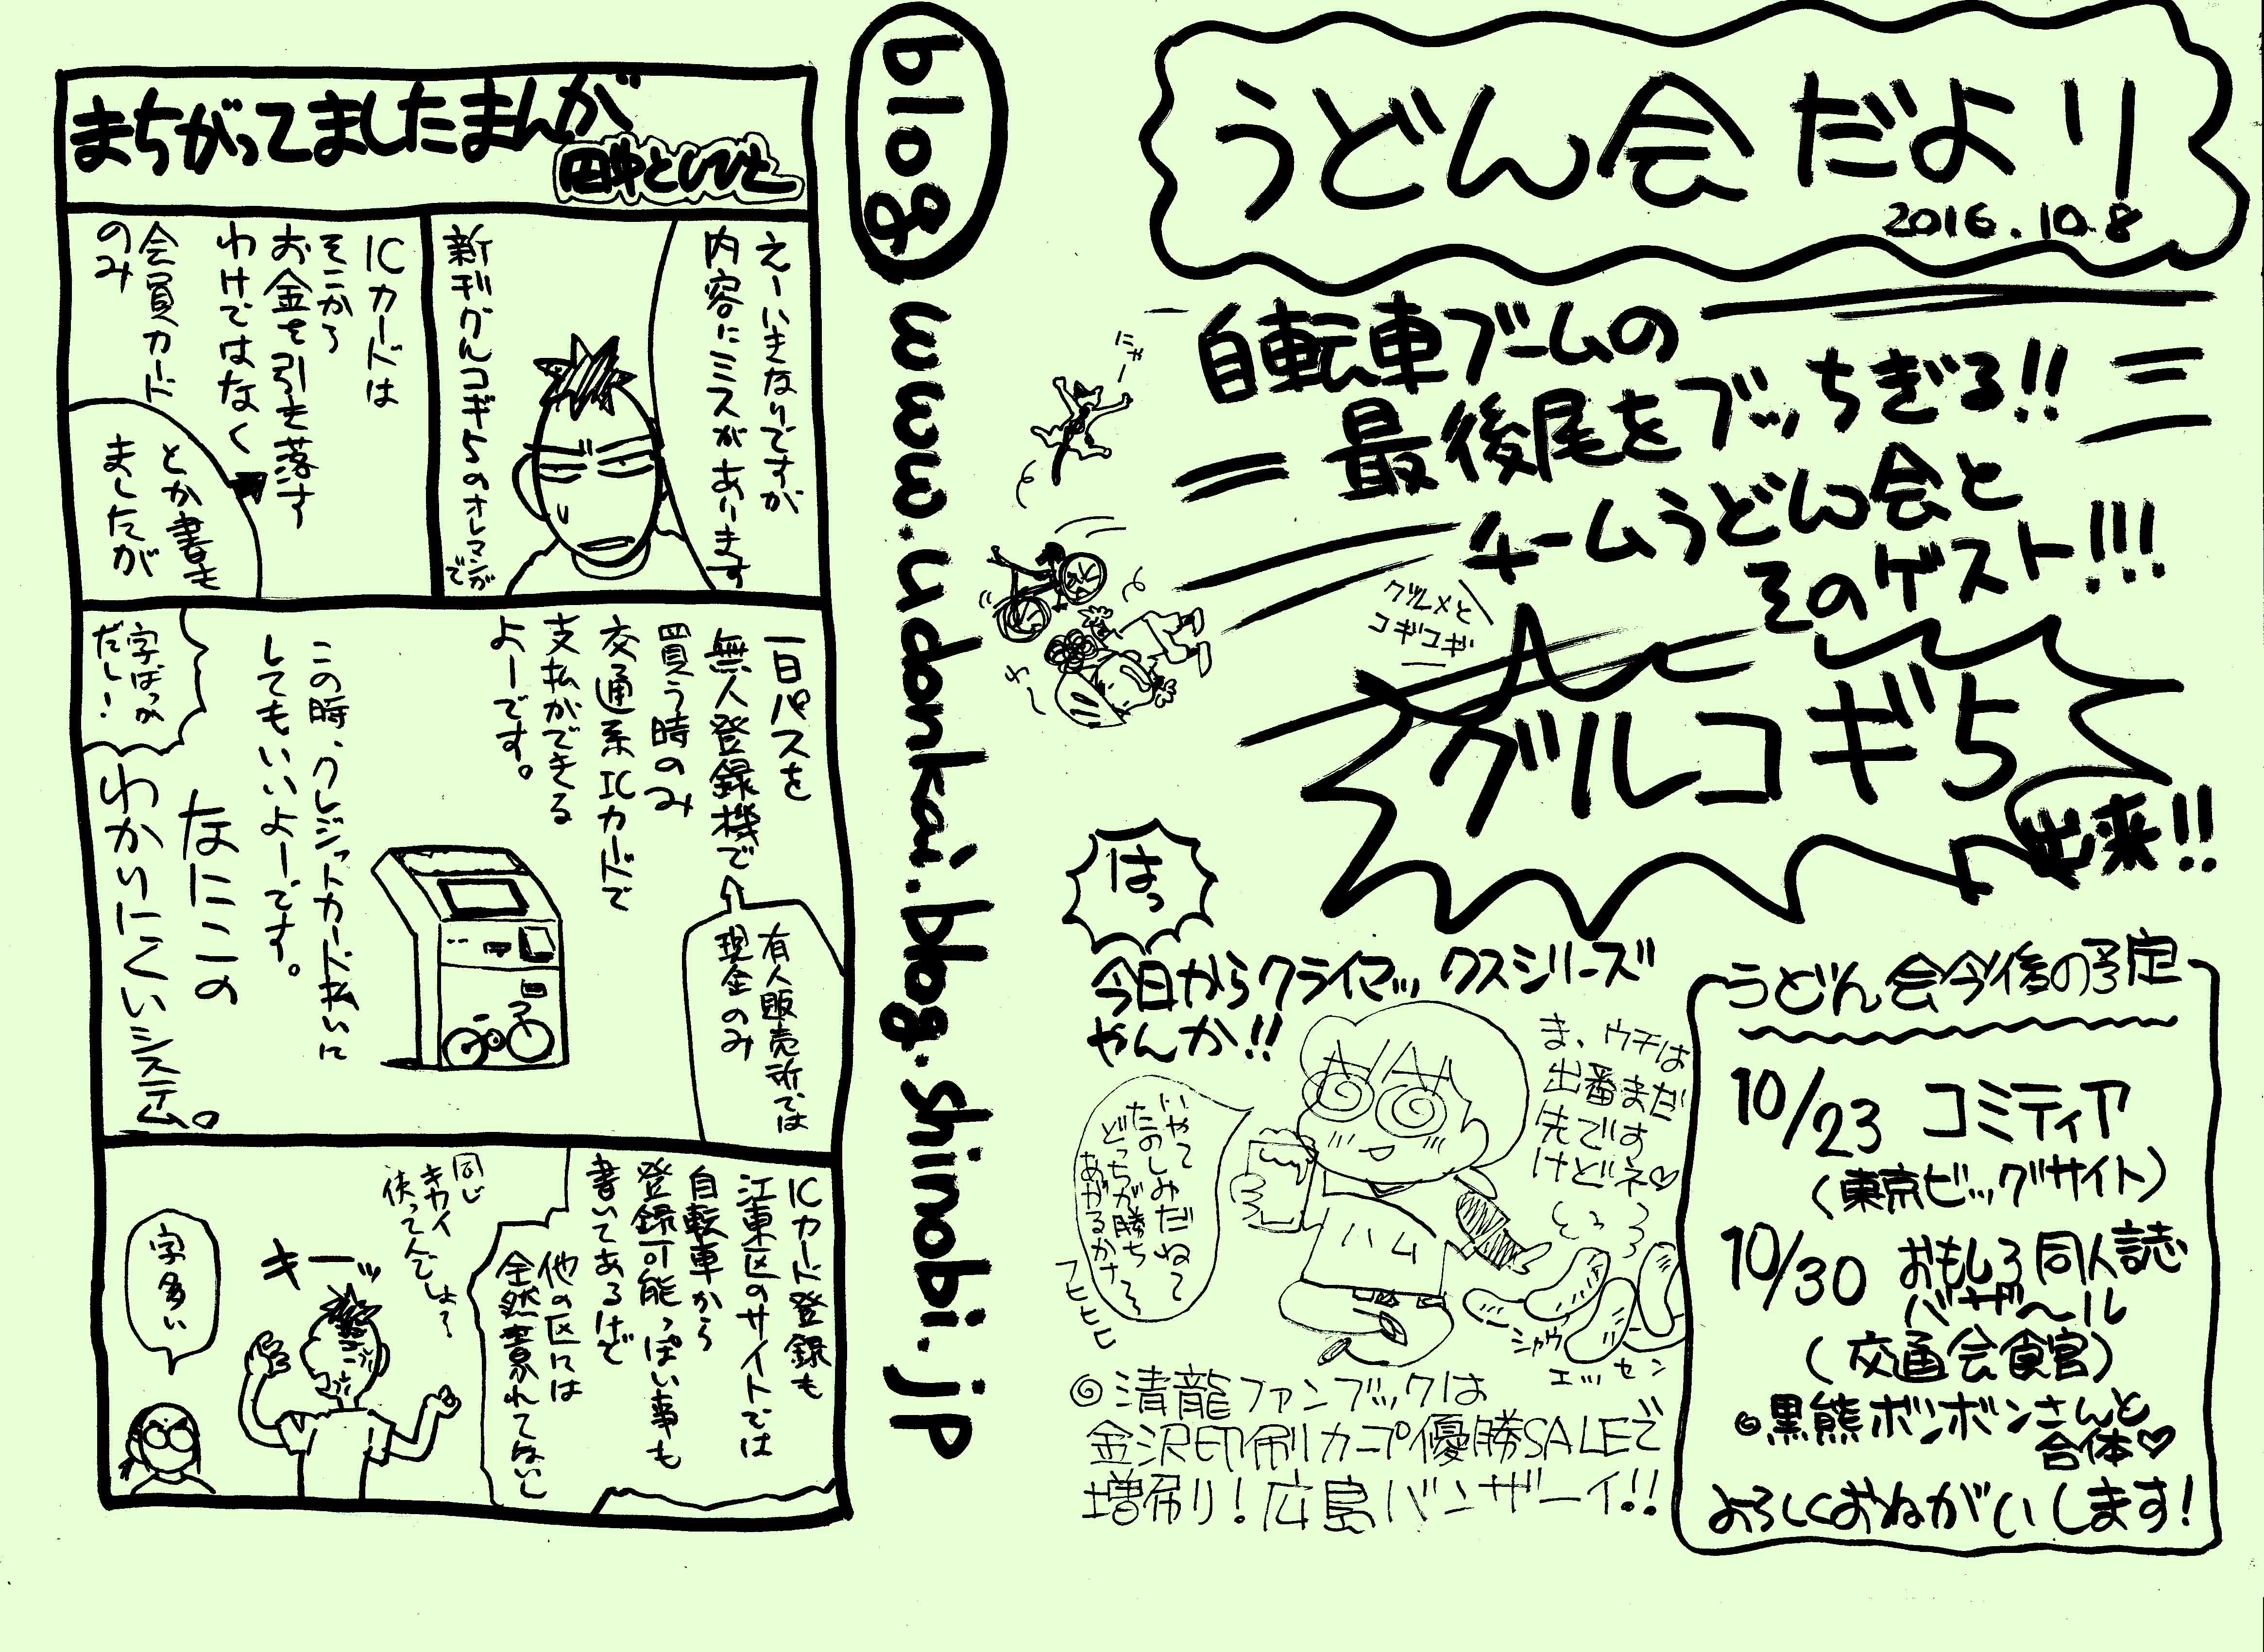 うどん会だより
2016.10.8
自転車ブームの
最後尾をブッちぎる!!
チームうどん会と
そのゲスト!!!
グルメと
コギコギ
グルコギ5
出来!!
にゃー
はっ
今日からクライマックスシリーズ
やんか!!
ま、ウチは
出番まだ
先です
けどネ♡
いやて
たのしみだねて
どっちが勝ち
あがるかナ
フヒヒヒ
シャウ
エッセン
◎清龍ファンブックは
金沢印刷カープ優勝SALEで
増刷り!広島バンザーイ!!
うどん会今後の予定
10/23 コミティア
(東京ビッグサイト)
10/30 おもしろ同人誌
バザール
(交通会館)
◎黒熊ボンボンさんと
合体♡
よろしくおねがいします!
blog
www.udonkai.blog.shinobi.jp
まちがってましたまんが
えーいきなりですが
内容にミスがあります
新刊グルコギ5のオレマンガ
で
ICカードは
そこから
お金を引き落す
わけではなく
会員カード
のみ
とか書き
ましたが
一日パスを
無人登録機で
買う時のみ
交通系ICカードで
支払ができる
よーです。
有人販売所では
現金のみ
この時、クレジットカード払いに
してもいいよーです。
なにこの
わかりにくいシステム。
字ばっか
だし!
ICカード登録も
江東区のサイトでは
自転車から
登録可能っぽい事も
書いてあるけど
他の区には
全然書かれてないし
同じ
キカイ
使ってんでしょ?
キーッ
字多い